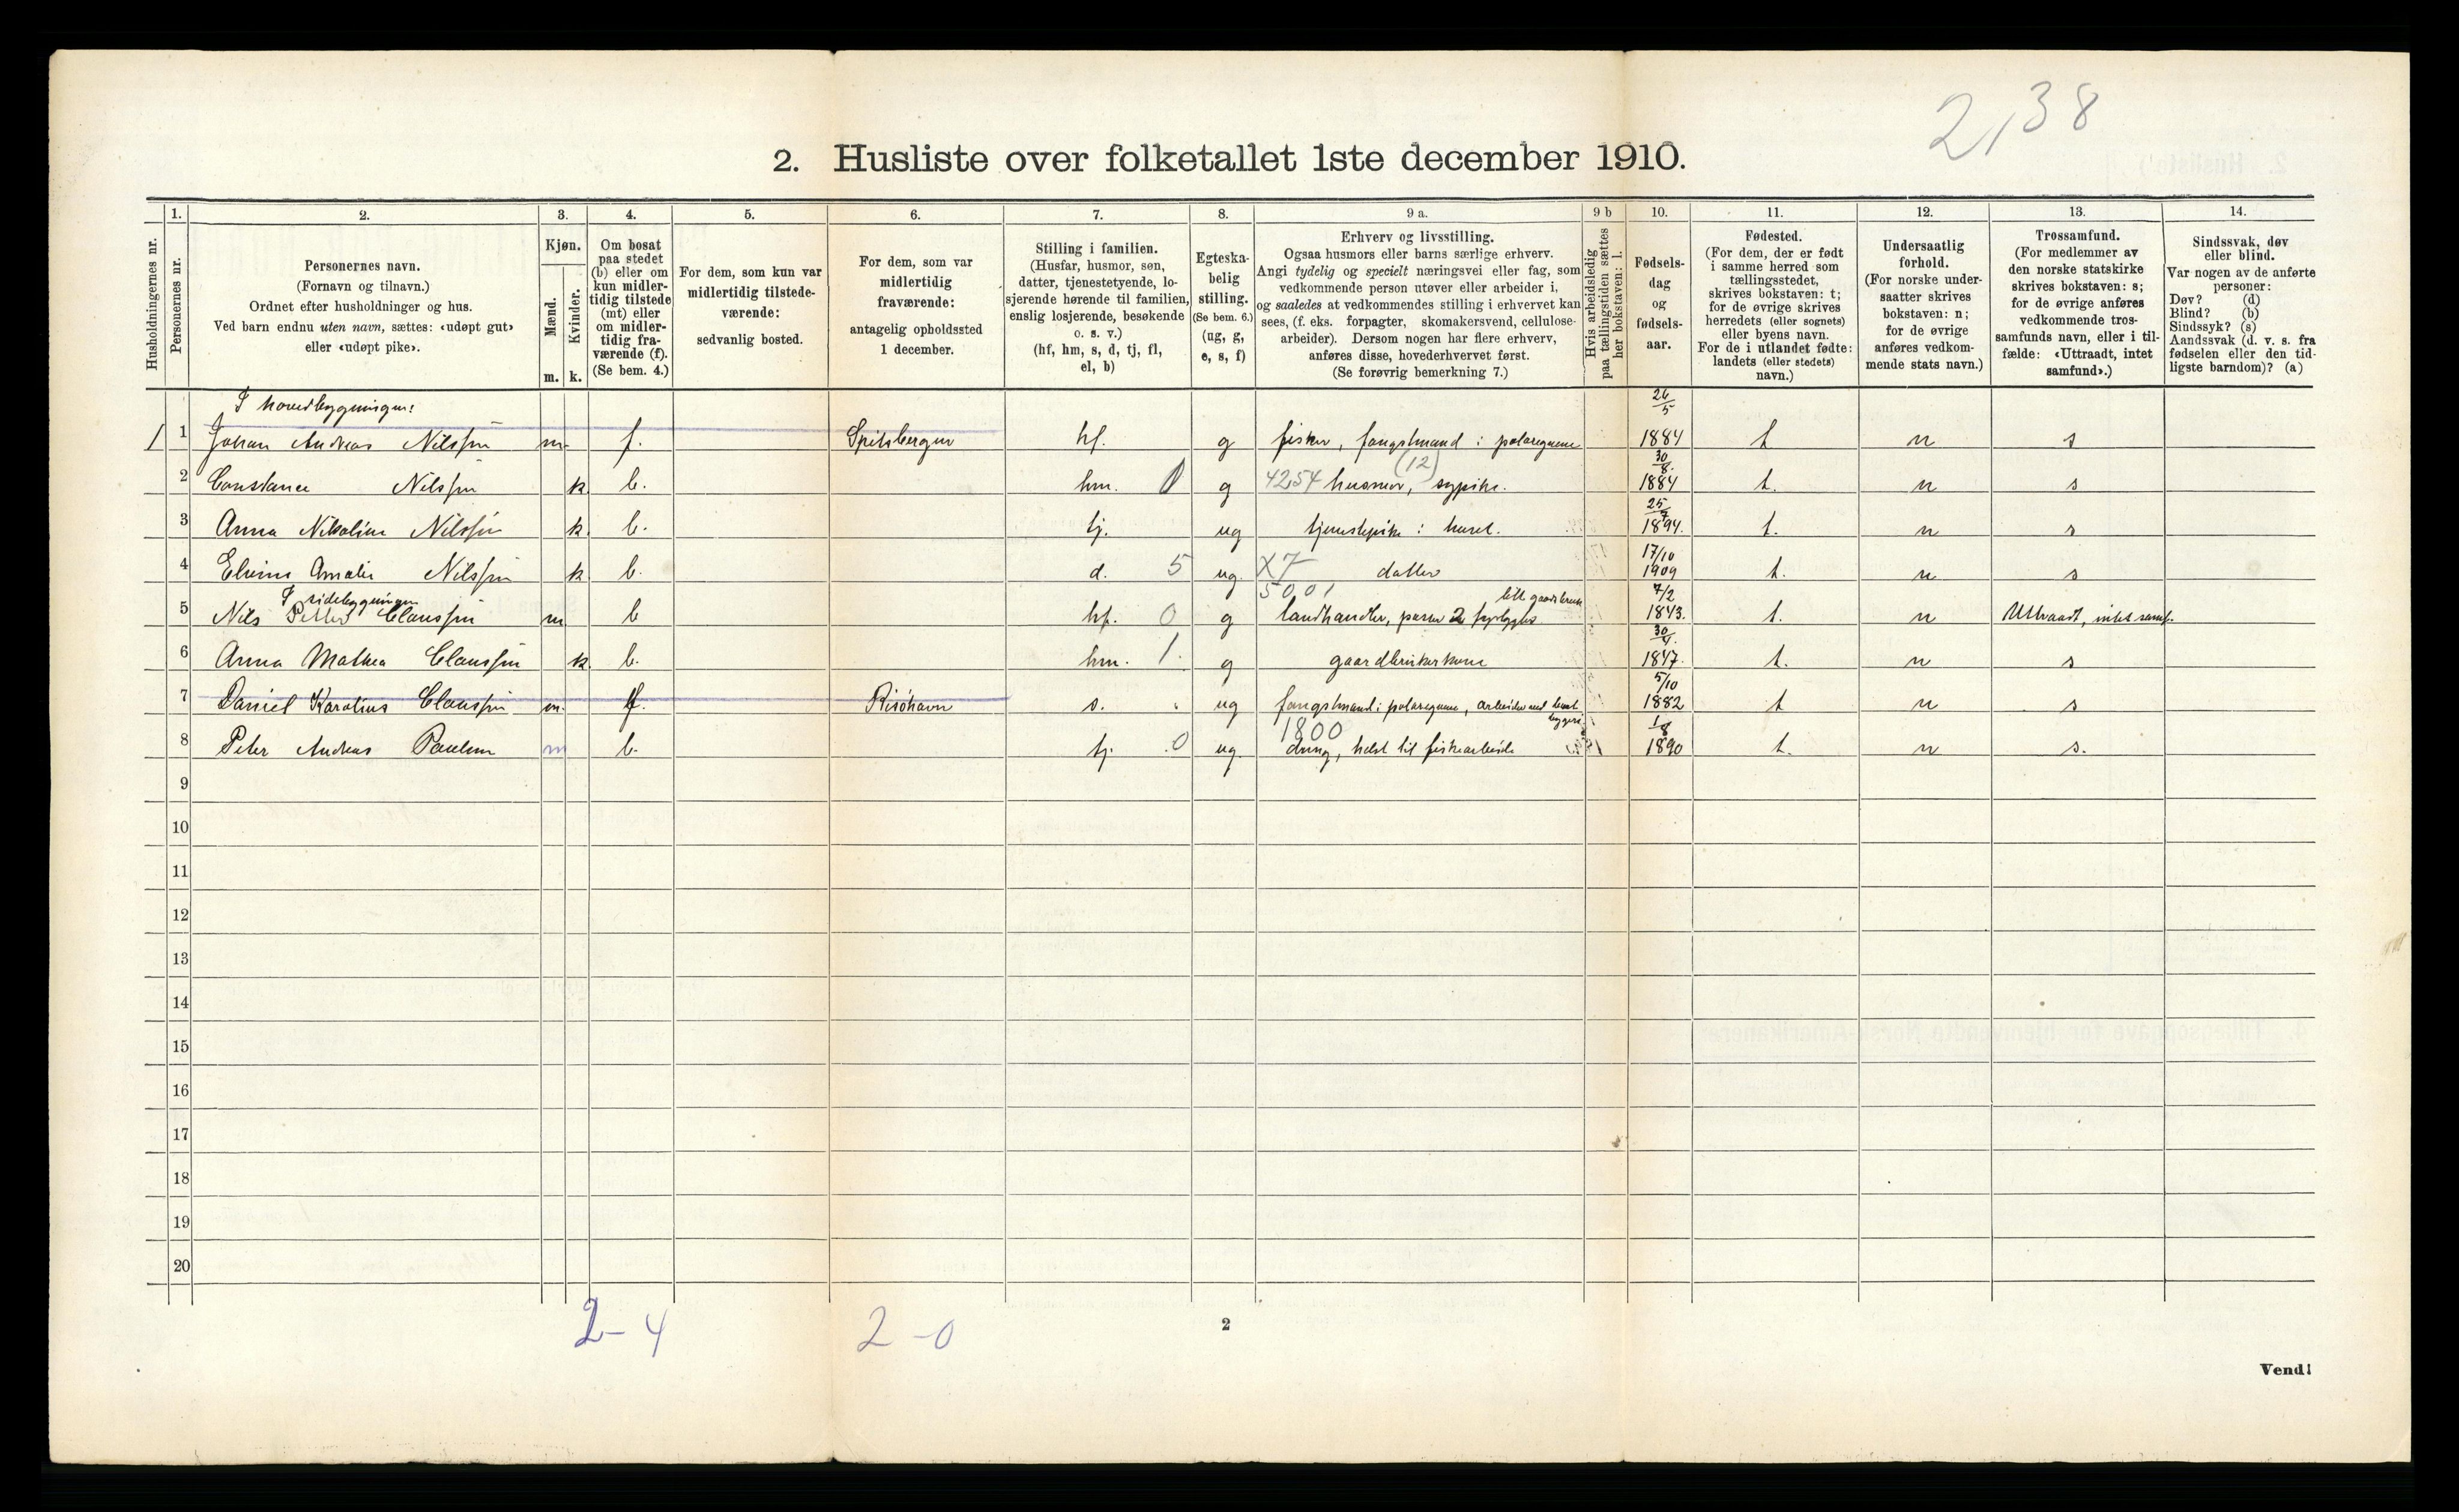 2,38
2. Husliste over folketallet 1ste december 1910.
Husholdningernes nr.
1. Personernes nr.
2. Personernes navn. (Fornavn og tilnavn.) Ordnet efter husholdninger og hus. Ved barn endnu uten navn, sættes: «udøpt gut» eller «udøpt pike».
3. Kjøn. Mænd. m. Kvinder. k.
4. Om bosat paa stedet (b) eller om kun midlertidig tilstede (mt) eller om midlertidig fraværende (f). (Se bem. 4.)
5. For dem, som kun var midlertidig tilstedeværende: sedvanlig bosted.
6. For dem, som var midlertidig fraværende: antagelig opholdssted 1 december.
7. Stilling i familien. (Husfar, husmor, søn, datter, tjenestetyende, losjerende hørende til familien, enslig losjerende, besøkende o. s. v.) (hf, hm, s, d, tj, fl, el, b)
8. Egteskabelig stilling. (Se bem. 6.) (ug, g, e, s, f)
9 a. Erhverv og livsstilling. Ogsaa husmors eller barns særlige erhverv. Angi tydelig og specielt næringsvei eller fag, som vedkommende person utøver eller arbeider i, og saaledes at vedkommendes stilling i erhvervet kan sees, (f. eks. forpagter, skomakersvend, cellulosearbeider). Dersom nogen har flere erhverv, anføres disse, hovederhvervet først. (Se forøvrig bemerkning 7.)
9 b Hvis arbeidsledig paa tællingstiden sættes her bokstaven: l.
10. Fødselsdag og fødselsaar.
11. Fødested. (For dem, der er født i samme herred som tællingsstedet, skrives bokstaven: t; for de øvrige skrives herredets (eller sognets) eller byens navn. For de i utlandet fødte: landets (eller stedets) navn.)
12. Undersaatlig forhold. (For norske undersaatter skrives bokstaven: n; for de øvrige anføres vedkommende stats navn.)
13. Trossamfund. (For medlemmer av den norske statskirke skrives bokstaven: s; for de øvrige anføres vedkommende trossamfunds navn, eller i tilfælde: «Uttraadt, intet samfund».)
14. Sindssvak, døv eller blind. Var nogen av de anførte personer: Døv? (d) Blind? (b) Sindssyk? (s) Aandssvak (d. v. s. fra fødselen eller den tidligste barndom)? (a)
I hovedbygningen:
1 1 Johan Andreas Nilssen m. f. Spitsbergen hf. g fisker, fangstmand i polaregnene 26/5 1884 t n s
2 Constance Nilssen k b. hm. 0 g 4254 husmor, sypike. (12) 30/8. 1884 t. n s
3 Anna Nikoline Nilssen k. b. tj. ug tjenestepike i huset. 25/7 1894. t. n s
4 Elvine Amalie Nilssen k b. d. 5 ug. X7 datter 17/10 1909 t. n s
I sidebygningen
5 Nils Petter Claussen m b hf. 0 g 5001 landhandler, passer 2 fyrlygter litt gaardsbruk 7/2 1843. t. n Uttraadt, intet samf.
6 Anna Mathea Claussen k. b. hm. 1. g gaardbrukerkone 30/4. 1847. t. n s
7 Daniel Karolius Claussen m. f. Risöhavn s. ug fangstmand i polaregnene, arbeider ved havnebyggeri 5/10 1882 t n s
8 Peter Andreas Paulsen m b. tj. 0 ug 1800 dreng, helst til fiskearbeide 1/8 1890 t. n s.
9
10
11
12
13
14
15
16
17
18
19
20
2-4 2-0
2
Vend!